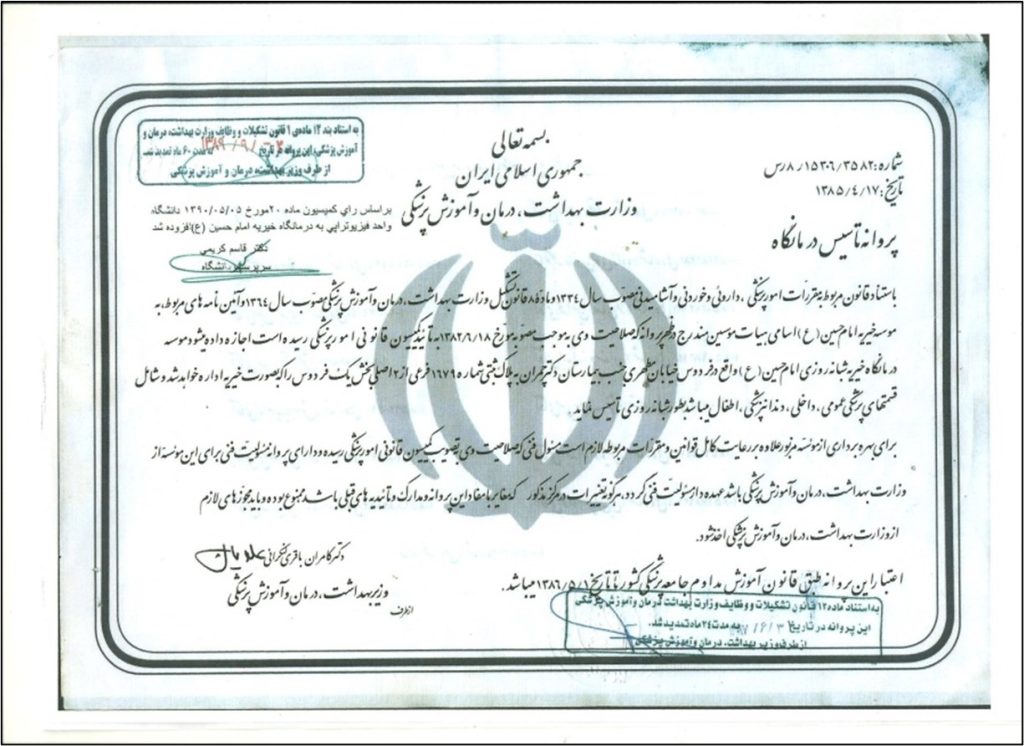 بسمه تعالی
جمهوری اسلامی ایران
وزارت بهداشت، درمان و آموزش پزشکی
شماره: ۸/۱۵۳۰۶/۳۵۸۲/س
تاریخ: ۱۳۸۵/۴/۱۷
پروانه تاسیس درمانگاه
به استناد بند ۱۲ ماده‌ی ۱ قانون تشکیلات و وظایف وزارت بهداشت، درمان و
آموزش پزشکی، این پروانه در تاریخ به مدت ۶۰ ماه تمدید شد
از طرف وزیر بهداشت، درمان و آموزش پزشکی
براساس رای کمیسیون ماده ۲۰ مورخ ۱۳۹۰/۰۵/۰۵ دانشگاه
واحد فیزیوتراپی به درمانگاه خیریه امام حسین (ع) افزوده شد
دکتر قاسم کریمی
سرپرست دانشگاه
باستناد قانون مربوط به مقررات امور پزشکی، داروئی و خوردنی و آشامیدنی مصوب سال ۱۳۳۴ و ماده ۸ قانون تشکیل وزارت بهداشت، درمان و آموزش پزشکی مصوب سال ۱۳۶۴ و آئین نامه های مربوط، به
موسسه خیریه امام حسین (ع) اسامی هیات موسسین مندرج در ظهر پروانه که صلاحیت وی به موجب مصوبه مورخ ۱۳۸۲/۶/۱۸ به تائید کمیسیون قانونی امور پزشکی رسیده است اجازه داده میشود موسسه
درمانگاه خیریه شبانه روزی امام حسین (ع) واقع در فردوس خیابان مطهری جنب بیمارستان دکتر چمران به پلاک ثبتی شماره ۱۶۷۹ فرعی از ۲ اصلی بخش یک فردوس را که بصورت خیریه اداره خواهد شد و شامل
قسمتهای پزشکی عمومی، داخلی، دندانپزشکی، اطفال میباشد بطور شبانه روزی تأسیس نماید.
برای بهره برداری از موسسه مزبور علاوه بر رعایت کامل قوانین و مقررات مربوطه لازم است مسئول فنی که صلاحیت وی بتصویب کمیسیون قانونی امور پزشکی رسیده و دارای پروانه مسئولیت فنی برای این موسسه از
وزارت بهداشت، درمان و آموزش پزشکی باشد عهده دار مسئولیت فنی گردد. هرگونه تغییرات در مرکز مذکور که مغایر با مفاد این پروانه و مدارک و تائیدیه های قبلی باشد ممنوع بوده و باید مجوزهای لازم
از وزارت بهداشت، درمان و آموزش پزشکی اخذ شود.
اعتبار این پروانه طبق قانون آموزش مداوم جامعه پزشکی کشور تا تاریخ ۱۳۸۶/۵/۱ میباشد.
دکتر کامران باقری لنکرانی
وزیر بهداشت، درمان و آموزش پزشکی
از طرف
به استناد ماده ۱۲ قانون تشکیلات و وظایف وزارت بهداشت درمان و آموزش پزشکی
این پروانه در تاریخ به مدت ۲۴ ماه تمدید شد.
از طرف وزیر بهداشت، درمان و آموزش پزشکی